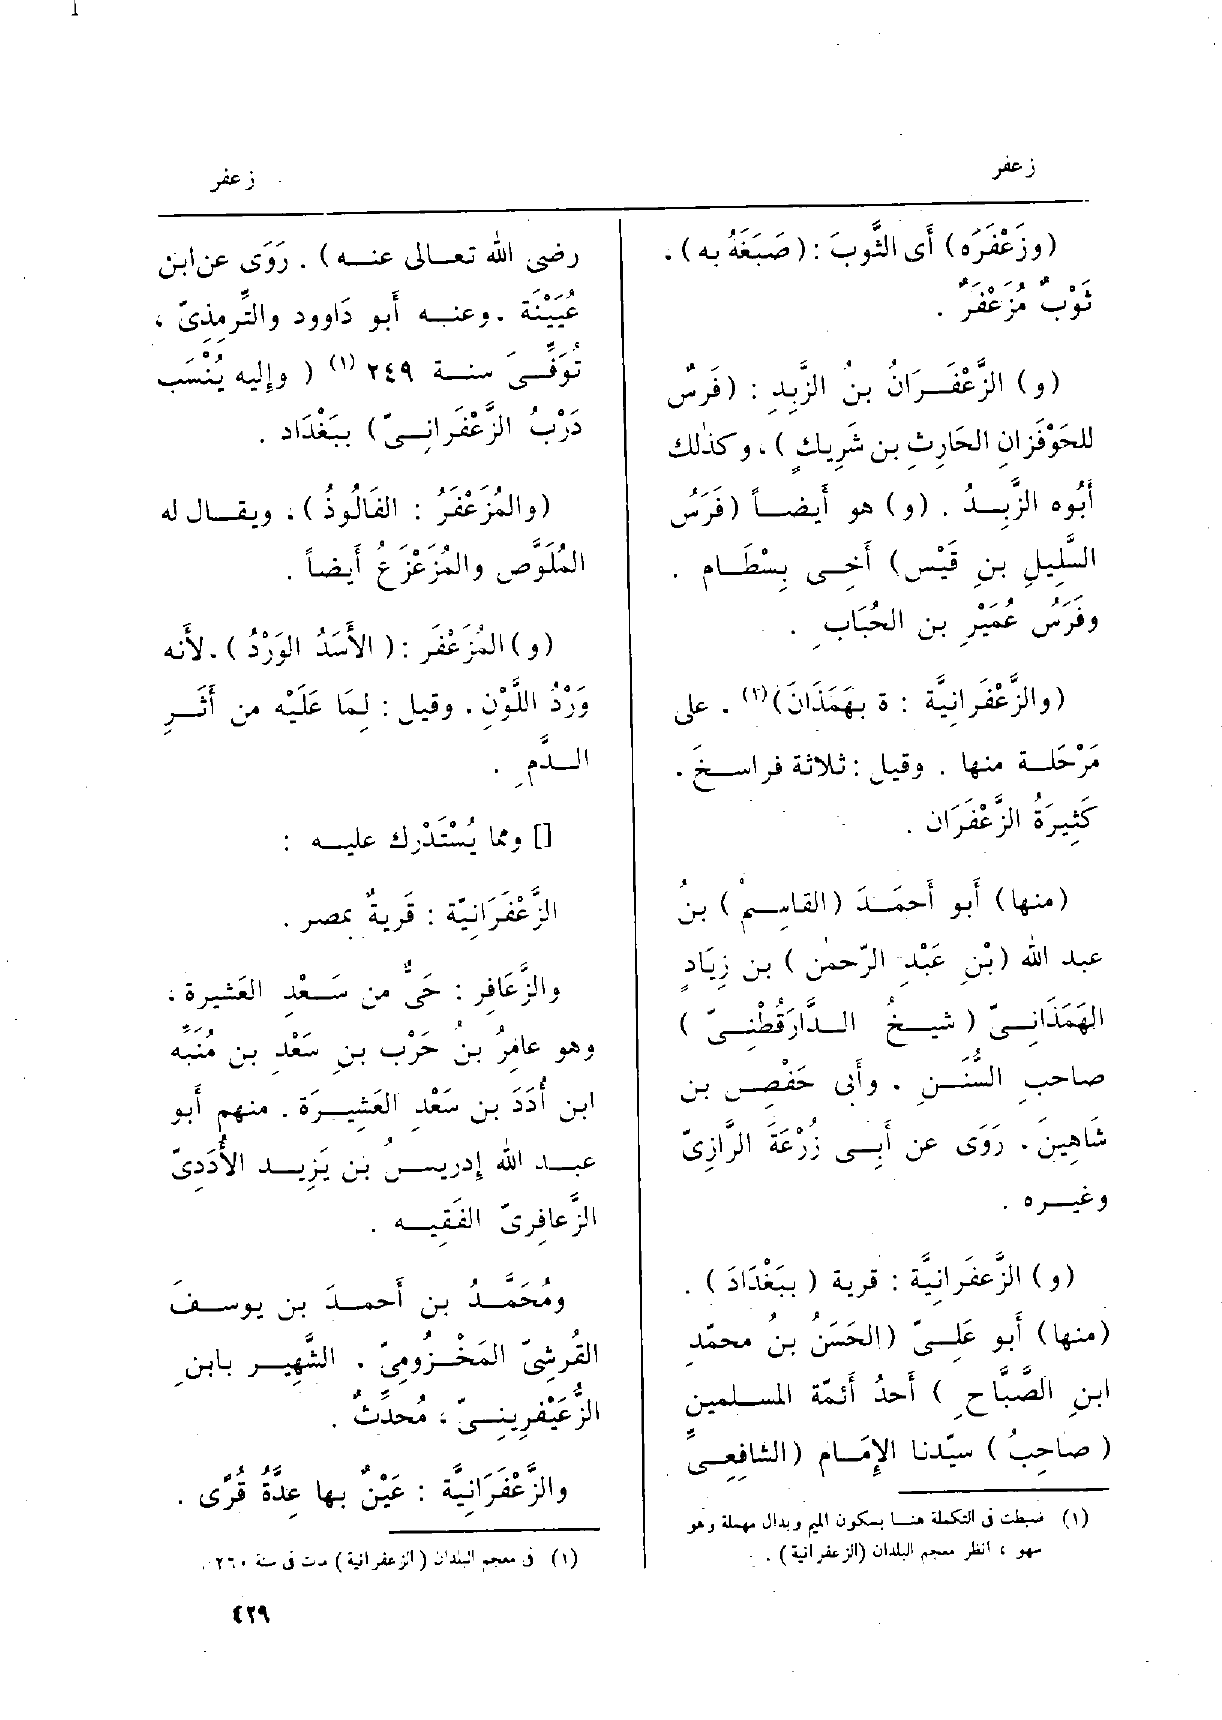 زعفر
زعفر
(وزَعْفَرَه) أَى الثَّوبَ : (صَبَغَهُ به) .
ثَوْبٌ مُزَعْفَرٌ .
(و) الزَّعْفَرَانُ بنُ الزَّبِدِ : (فَرَسٌ
للحَوْفَزانِ الحَارِثِ بن شَرِيكٍ ) ، وكذٰلك
أَبُوه الزَّبِدُ . (و) هو أَيضاً (فَرَسُ
السَّلِيلِ بنِ قَيْس) أَخِى بِسْطَام .
وفَرَسُ عُمَيْرِ بن الحُبَابِ .
(والزَّعْفَرَانِيَّة : ة بهَمَذَانَ)(١) . على
مَرْحَلة منها . وقيل : ثلاثة فراسخَ .
كَثِيرَةُ الزَّعْفَرَان .
(منها) أَبو أَحمَدَ (القاسِمُ ) بنُ
عبد الله (بْنِ عَبْدِ الرّحمٰن ) بن زِيَادٍ
الهَمَذَانِىّ ( شيخُ الدَّارَقُطْنِىّ )
صاحبِ السُّنَنِ . وأَبى حَفْص بن
شَاهِينَ . رَوَى عن أَبِى زُرْعَةَ الرَّازِىّ
وغيره .
(و) الزَّعفَرانِيَّة : قرية ( ببَغْدَادَ ) .
(منها) أَبو عَلِىّ (الحَسَنُ بنُ محمّدِ
ابنِ الصَّبَّاحِ ) أَحدُ أَئمّة المسلمين
( صاحِبُ ) سيّدنا الإِمَام (الشافِعِىِّ
(١) ضبطت فى التكملة هنا بسكون الميم وبدال مهملة وهو
سهو ، انظر معجم البلدان (الزعفرانية) .
رضى الله تعالى عنه ) . رَوَى عن ابن
عُيَيْنَة . وعنه أَبو دَاوود والتِّرمِذىّ ،
تُوُفِّىَ سنة ٢٤٩ (١) ( وإِليه يُنْسَب
دَرْبُ الزَّعْفَرانِىّ) ببَغْدَاد .
(والمُزَعْفَرُ : الفَالُوذُ ) ، ويقال له
المُلَوَّص والمُزَعْزَعُ أَيضاً .
(و) المُزَعْفَر : ( الأَسَدُ الوَرْدُ ) . لأَنه
وَرْدُ اللَّوْنِ . وقيل : لِمَا عَلَيْه من أَثَرِ
الدَّمِ .
[] ومما يُسْتَدْرك عليه :
الزَّعْفَرَانِيّة : قَريةٌ بمصر .
والزَّعَافِر : حَىٌّ من سَعْدِ العَشيرة ،
وهو عامِرُ بنُ حَرْب بنِ سَعْدِ بن مُنَبِّه
ابن أُدَدَ بن سَعْدِ العَشِيرَة . منهم أَبو
عبد الله إِدريس بن يَزِيد الأُدَدِىّ
الزَّعافِرىّ الفَقِيه .
ومُحَمَّدُ بن أَحمدَ بن يوسفَ
القُرشىّ المَخْزُومِىّ . الشَّهِير بابنِ
الزُّعَيْفِرِينِىّ ، مُحَدِّثٌ .
والزَّعْفَرَانِيَّة : عَيْنٌ بها عِدَّةُ قُرًى .
(١) فى معجم البلدان (الزعفرانية) مات فى سنة ٢٦٠ .
٤٢٩